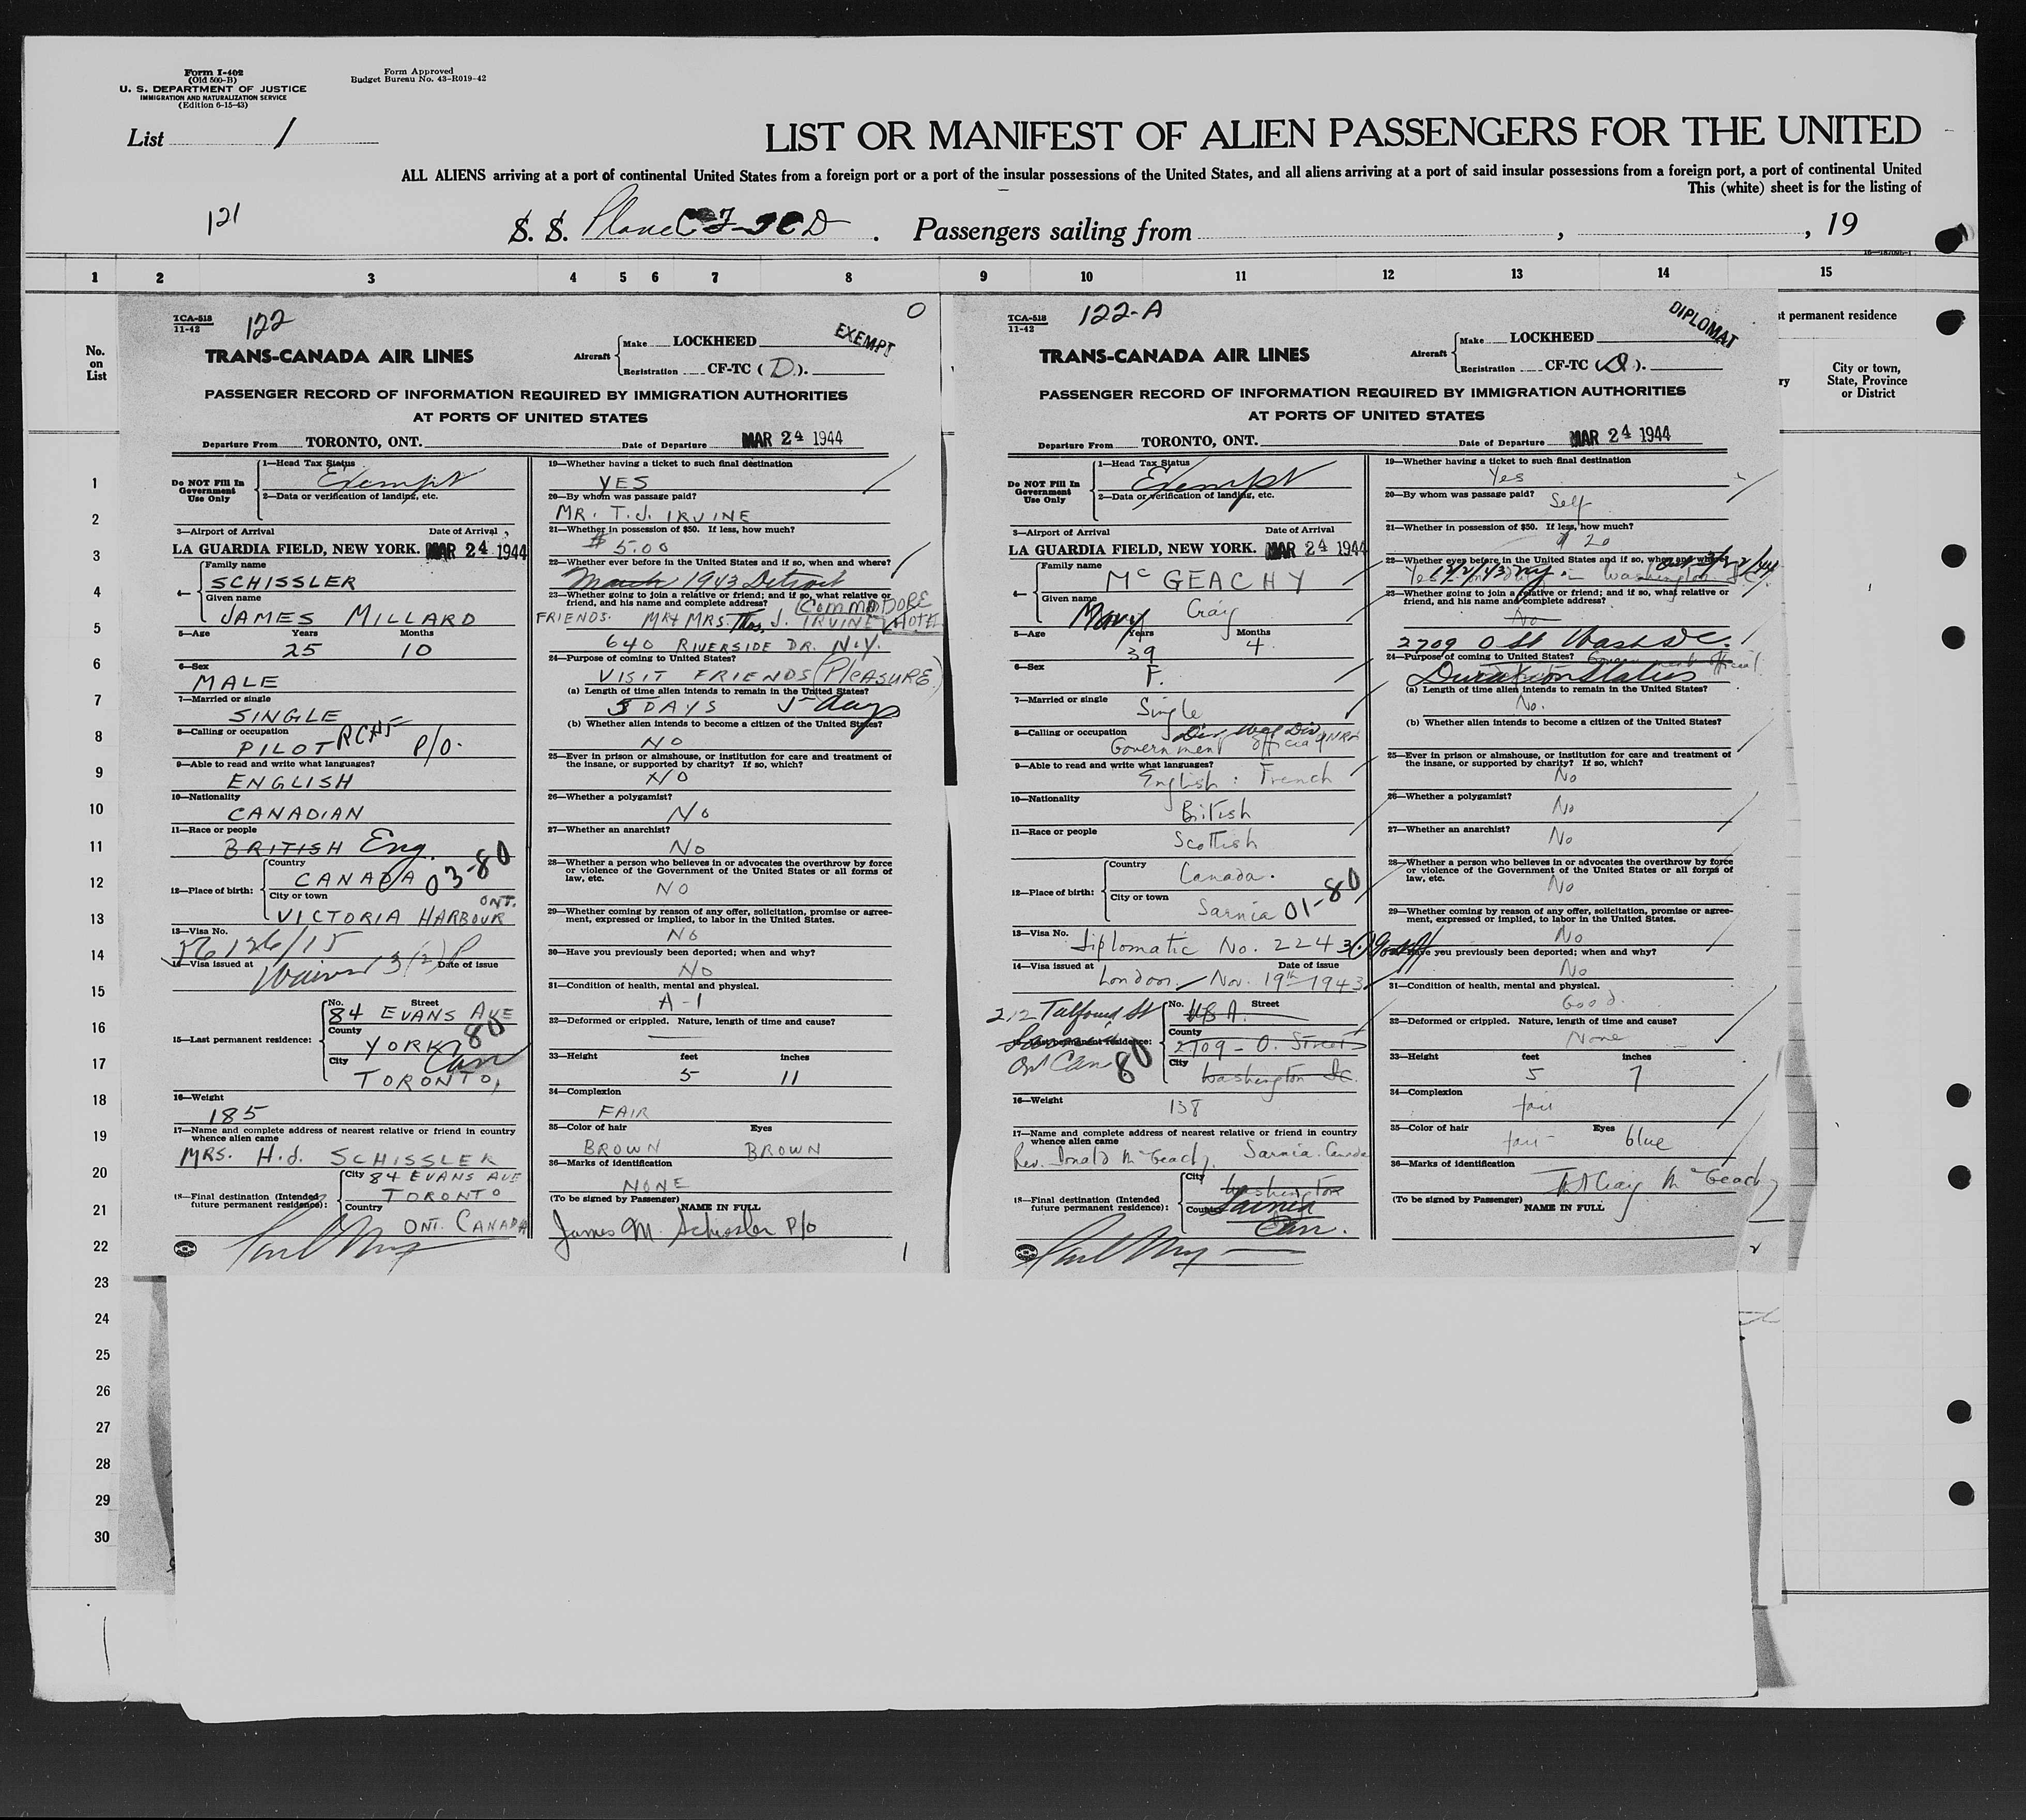 Form I-402
(Old 500-B)
U. S. DEPARTMENT OF JUSTICE
IMMIGRATION AND NATURALIZATION SERVICE
(Edition 6-15-43)
Form Approved
Budget Bureau No. 43-R019-42
List 1
LIST OR MANIFEST OF ALIEN PASSENGERS FOR THE UNITED
ALL ALIENS arriving at a port of continental United States from a foreign port or a port of the insular possessions of the United States, and all aliens arriving at a port of said insular possessions from a foreign port, a port of continental United
This (white) sheet is for the listing of
121
S. S. Plane CF-TCD . Passengers sailing from , , 19
1 2 3 4 5 6 7 8 9 10 11 12 13 14 15
No. on List
t permanent residence
ry
City or town, State, Province or District
1
2
3
4
5
6
7
8
9
10
11
12
13
14
15
16
17
18
19
20
21
22
23
24
25
26
27
28
29
30
TCA-518
11-42
122
0
EXEMPT
TRANS-CANADA AIR LINES
Aircraft
Make LOCKHEED
Registration CF-TC (D).
PASSENGER RECORD OF INFORMATION REQUIRED BY IMMIGRATION AUTHORITIES
AT PORTS OF UNITED STATES
Departure From TORONTO, ONT. Date of Departure MAR 24 1944
Do NOT Fill In Government Use Only
1—Head Tax Status
Exempt
2—Data or verification of landing, etc.
3—Airport of Arrival Date of Arrival
LA GUARDIA FIELD, NEW YORK. MAR 24 1944
4—
Family name
SCHISSLER
Given name
JAMES MILLARD
5—Age Years Months
25 10
6—Sex
MALE
7—Married or single
SINGLE
8—Calling or occupation
PILOT RCAF P/O.
9—Able to read and write what languages?
ENGLISH
10—Nationality
CANADIAN
11—Race or people
BRITISH Eng.
12—Place of birth:
Country
CANADA 03-80
City or town
VICTORIA HARBOUR ONT.
13—Visa No.
56126/15
14—Visa issued at Date of issue
Waiver 3(2) P
15—Last permanent residence:
No. Street
84 EVANS AVE
County
YORK 80
Can
City
TORONTO,
16—Weight
185
17—Name and complete address of nearest relative or friend in country whence alien came
MRS. H.J. SCHISSLER
18—Final destination (Intended future permanent residence):
City 84 EVANS AVE
TORONTO
Country
ONT. CANADA
19—Whether having a ticket to such final destination
YES
20—By whom was passage paid?
MR. T.J. IRVINE
21—Whether in possession of $50. If less, how much?
$ 5.00
22—Whether ever before in the United States and if so, when and where?
March 1943 Detroit
23—Whether going to join a relative or friend; and if so, what relative or friend, and his name and complete address?
COMMODORE HOTEL
FRIENDS. MR & MRS. Thos. J. IRVINE
640 RIVERSIDE DR. N.Y.
24—Purpose of coming to United States?
VISIT FRIENDS (PLEASURE)
(a) Length of time alien intends to remain in the United States?
5 DAYS 5 days
(b) Whether alien intends to become a citizen of the United States?
NO
25—Ever in prison or almshouse, or institution for care and treatment of the insane, or supported by charity? If so, which?
NO
26—Whether a polygamist?
NO
27—Whether an anarchist?
NO
28—Whether a person who believes in or advocates the overthrow by force or violence of the Government of the United States or all forms of law, etc.
NO
29—Whether coming by reason of any offer, solicitation, promise or agreement, expressed or implied, to labor in the United States.
NO
30—Have you previously been deported; when and why?
NO
31—Condition of health, mental and physical.
A-1
32—Deformed or crippled. Nature, length of time and cause?
33—Height feet inches
5 11
34—Complexion
FAIR
35—Color of hair Eyes
BROWN BROWN
36—Marks of identification
NONE
(To be signed by Passenger) NAME IN FULL
James M. Schissler P/O
1
TCA-518
11-42
122-A
DIPLOMAT
TRANS-CANADA AIR LINES
Aircraft
Make LOCKHEED
Registration CF-TC (D).
PASSENGER RECORD OF INFORMATION REQUIRED BY IMMIGRATION AUTHORITIES
AT PORTS OF UNITED STATES
Departure From TORONTO, ONT. Date of Departure MAR 24 1944
Do NOT Fill In Government Use Only
1—Head Tax Status
Exempt
2—Data or verification of landing, etc.
3—Airport of Arrival Date of Arrival
LA GUARDIA FIELD, NEW YORK. MAR 24 1944
4—
Family name
McGEACHY
Given name
Mary Craig
5—Age Years Months
39 4
6—Sex
F.
7—Married or single
Single
8—Calling or occupation
Government official
9—Able to read and write what languages?
English : French
10—Nationality
British
11—Race or people
Scottish
12—Place of birth:
Country
Canada.
City or town
Sarnia 01-80
13—Visa No.
Diplomatic No. 2243
14—Visa issued at Date of issue
London Nov. 19th 1943
212 Talfourd St
Ont Can 80
15—Last permanent residence:
No. Street
USA.
County
2709 - O. Street
City
Washington DC.
16—Weight
138
17—Name and complete address of nearest relative or friend in country whence alien came
Rev. Donald McGeachy. Sarnia. Canada
18—Final destination (Intended future permanent residence):
City
Washington
Country Sarnia
Can.
19—Whether having a ticket to such final destination
Yes
20—By whom was passage paid?
Self
21—Whether in possession of $50. If less, how much?
$ 20
22—Whether ever before in the United States and if so, when and where?
Yes 12/2/43 NY in Washington
23—Whether going to join a relative or friend; and if so, what relative or friend, and his name and complete address?
No
2709 O St Wash DC.
24—Purpose of coming to United States? Government official
Duration Status
(a) Length of time alien intends to remain in the United States?
No.
(b) Whether alien intends to become a citizen of the United States?
25—Ever in prison or almshouse, or institution for care and treatment of the insane, or supported by charity? If so, which?
No
26—Whether a polygamist?
No
27—Whether an anarchist?
No
28—Whether a person who believes in or advocates the overthrow by force or violence of the Government of the United States or all forms of law, etc.
No
29—Whether coming by reason of any offer, solicitation, promise or agreement, expressed or implied, to labor in the United States.
No
Have you previously been deported; when and why?
No
31—Condition of health, mental and physical.
Good.
32—Deformed or crippled. Nature, length of time and cause?
None
33—Height feet inches
5 7
34—Complexion
fair
35—Color of hair Eyes
fair blue
36—Marks of identification
(To be signed by Passenger) NAME IN FULL
M Craig McGeachy